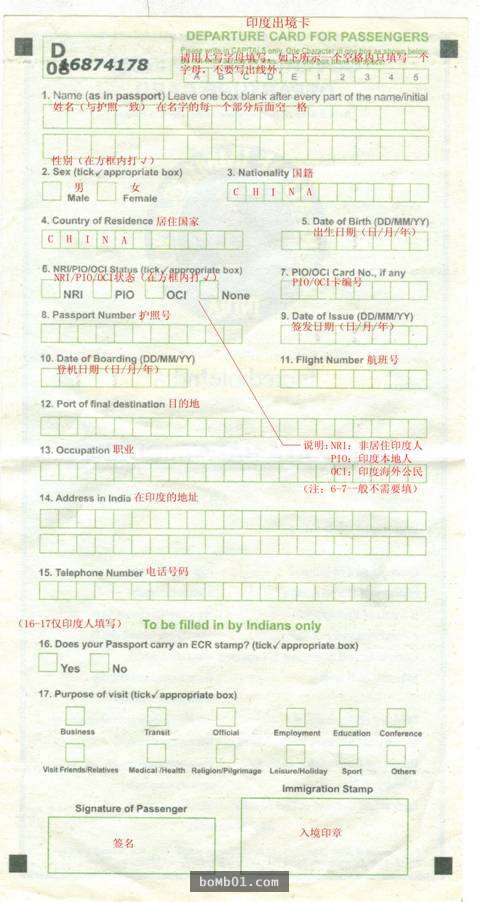 印度出境卡
DEPARTURE CARD FOR PASSENGERS
D
08
16874178
Please write in CAPITALS only. One Character in one box as shown below
请用大写字母填写，如下所示一个空格内只填写一个
字母，不要写出线外。
A B C D E 1 2 3 4 5
1. Name (as in passport) Leave one box blank after every part of the name/initial
姓名（与护照一致） 在名字的每一个部分后面空一格
性别（在方框内打✓）
2. Sex (tick✓appropriate box)
男 女
Male Female
3. Nationality 国籍
C H I N A
4. Country of Residence 居住国家
C H I N A
5. Date of Birth (DD/MM/YY)
出生日期（日/月/年）
6. NRI/PIO/OCI Status (tick✓appropriate box)
NRI/PIO/OCI状态（在方框内打✓）
NRI PIO OCI None
7. PIO/OCI Card No., if any
PIO/OCI卡编号
8. Passport Number 护照号
9. Date of Issue (DD/MM/YY)
签发日期（日/月/年）
10. Date of Boarding (DD/MM/YY)
登机日期（日/月/年）
11. Flight Number 航班号
12. Port of final destination 目的地
13. Occupation 职业
说明：NRI：非居住印度人
PIO：印度本地人
OCI：印度海外公民
（注：6-7一般不需要填）
14. Address in India 在印度的地址
15. Telephone Number 电话号码
（16-17仅印度人填写） To be filled in by Indians only
16. Does your Passport carry an ECR stamp? (tick✓appropriate box)
Yes No
17. Purpose of visit (tick✓appropriate box)
Business Transit Official Employment Education Conference
Visit Friends/Relatives Medical /Health Religion/Pilgrimage Leisure/Holiday Sport Others
Signature of Passenger
签名
Immigration Stamp
入境印章
boMb01.com